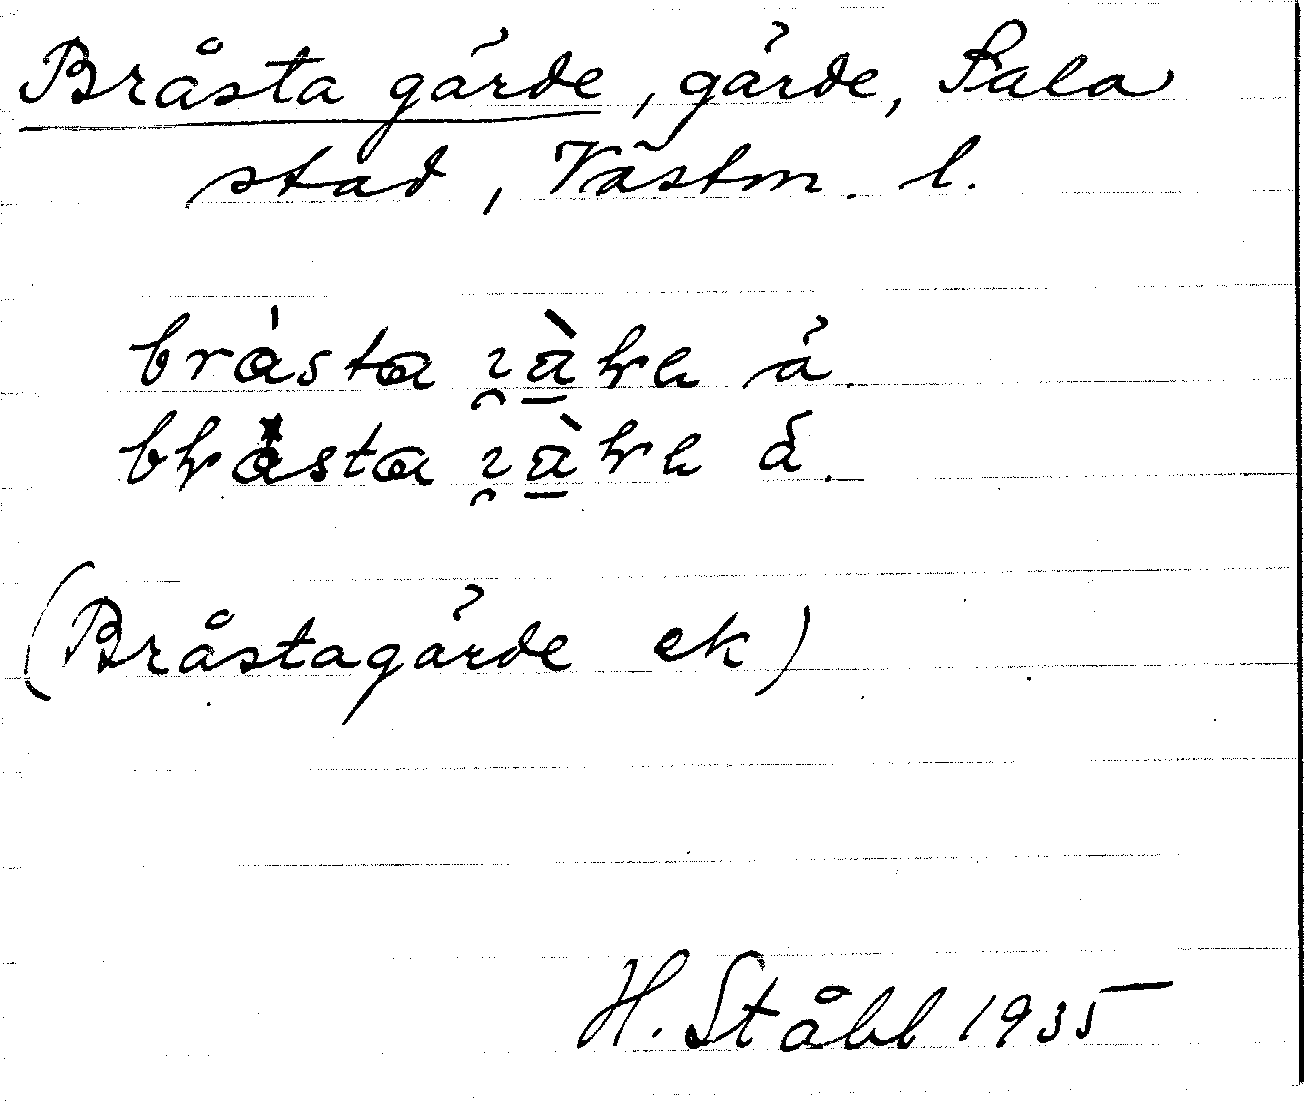 Bråsta gärde, gärde, Sala
stad, Västm. l.
brásta
ä.
bråsta
å.
(Bråstagärde ek)
H. Ståhl 1935